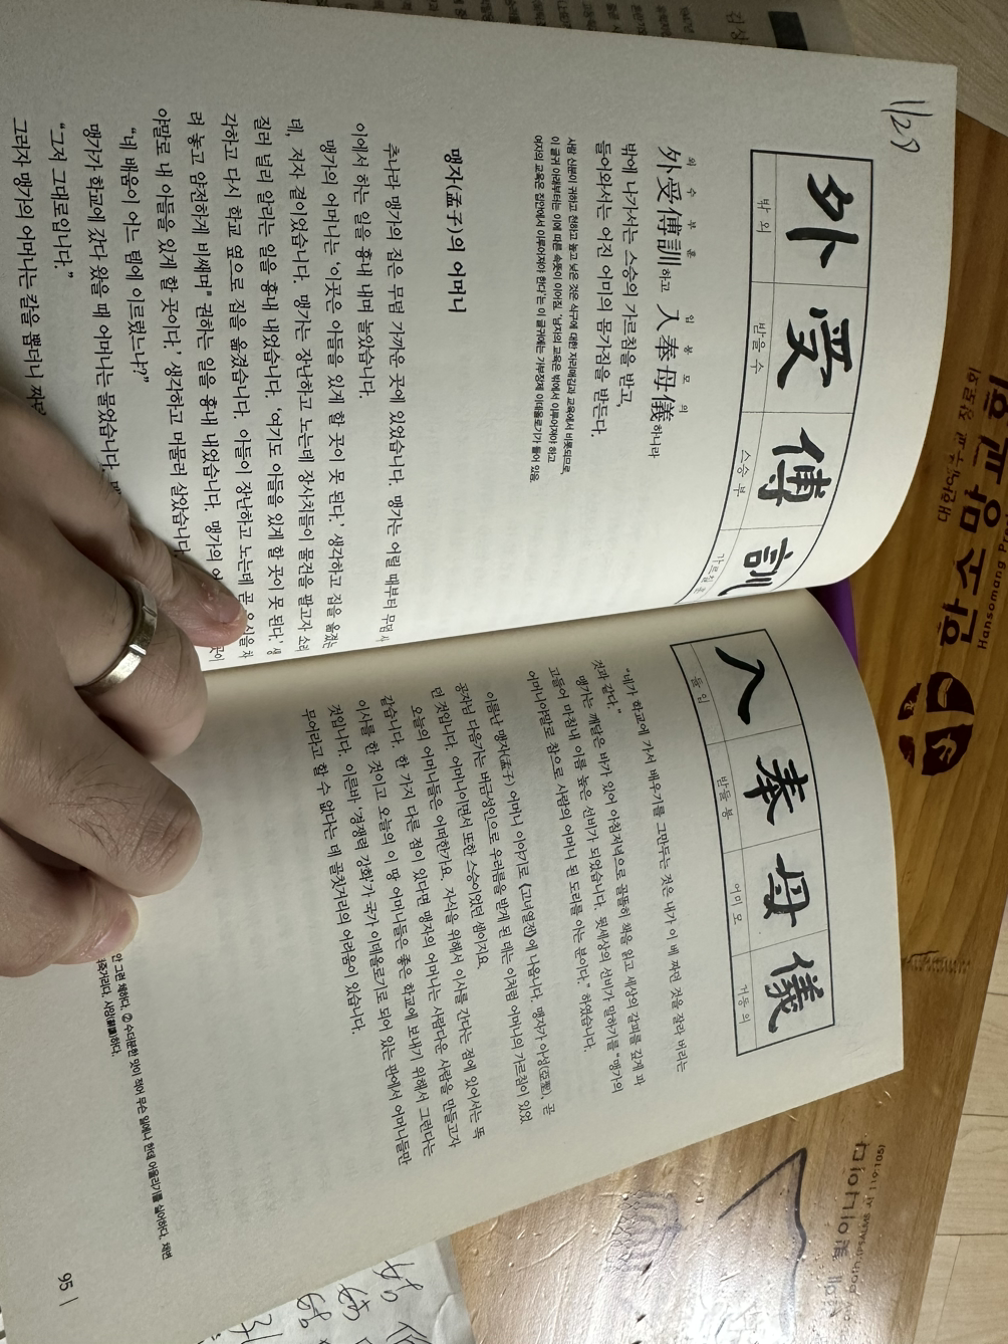 1/27
外 受 傅 訓
밖 외 받을 수 스승 부 가르칠 훈
외 수 부 훈 입 봉 모 의
外受傅訓하고 入奉母儀하니라
밖에 나가서는 스승의 가르침을 받고,
들어와서는 어진 어미의 몸가짐을 받든다.
사람 신분이 귀하고 천하고 높고 낮은 것은 식구에 대한 자리매김과 교육에서 비롯되므로,
이 글귀 아래부터는 이에 따른 속뜻이 이어짐. '남자의 교육은 밖에서 이루어져야 하고
여자의 교육은 집안에서 이루어져야 한다'는 이 글귀에는 가부장제 이데올로기가 들어 있음.
맹자(孟子)의 어머니
추나라 맹가의 집은 무덤 가까운 곳에 있었습니다. 맹가는 어릴 때부터 무덤 사
이에서 하는 일을 흉내 내며 놀았습니다.
맹가의 어머니는 '이곳은 아들을 있게 할 곳이 못 된다.' 생각하고 집을 옮겼는
데, 저자 곁이었습니다. 맹가는 장난하고 노는데 장사치들이 물건을 팔고자 소리
질러 널리 알리는 일을 흉내 내었습니다. '여기도 아들을 있게 할 곳이 못 된다.' 생
각하고 다시 학교 옆으로 집을 옮겼습니다. 아들이 장난하고 노는데 곧 음식을 차
려 놓고 얌전하게 비쌔며" 권하는 일을 흉내 내었습니다. 맹가의
야말로 내 아들을 있게 할 곳이다.' 생각하고 머물러 살았습니다.
"네 배움이 어느 텀에 이르렀느냐?"
맹가가 학교에 갔다 왔을 때 어머니는 물었습니다.
"그저 그대로입니다."
그러자 맹가의 어머니는 칼을 뽑더니
入 奉 母 儀
들 입 받들 봉 어미 모 거동 의
"네가 학교에 가서 배우기를 그만두는 것은 내가 이 베 짜던 것을 잘라 버리는
것과 같다."
맹가는 깨달은 바가 있어 아침저녁으로 꼼꼼히 책을 읽고 세상의 갈피를 깊게 파
고들어 마침내 이름 높은 선비가 되었습니다. 뒷세상의 선비가 말하기를 "맹가의
어머니야말로 참으로 사람의 어머니 된 도리를 아는 분이다." 하였습니다.
이름난 맹자(孟子) 어머니 이야기로 《고녀열전》에 나옵니다. 맹자가 아성(亞聖), 곧
공자님 다음가는 버금성인으로 우러름을 받게 된 데는 이처럼 어머니의 가르침이 있었
던 것입니다. 어머니이면서 또한 스승이었던 셈이지요.
오늘의 어머니들은 어떠한가요. 자식을 위해서 이사를 간다는 점에 있어서는 똑
같습니다. 한 가지 다른 점이 있다면 맹자의 어머니는 사람다운 사람을 만들고자
이사를 한 것이고 오늘의 이 땅 어머니들은 좋은 학교에 보내기 위해서 그런다는
것입니다. 이른바 '경쟁력 강화'가 국가 이데올로기로 되어 있는 판에서 어머니들만
무어라고 할 수 없다는 데 골칫거리의 어려움이 있습니다.
안 그런 체하다. ② 수더분한 맛이 적어 무슨 일에나 한데 어울리기를 싫어하다.
사양(辭讓)하다.
95 |
Hansomang